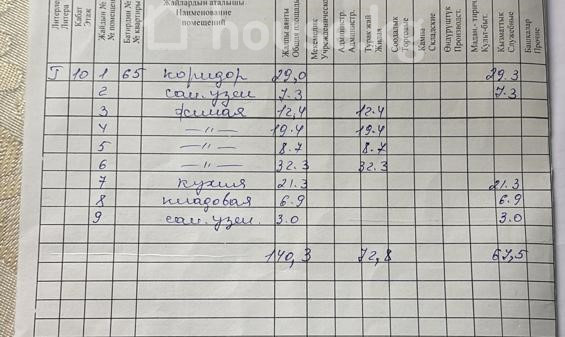 Литера
Кабат
Этаж
Жайдын №
№ помещен
№ квартиры
Жайлардын аталышы
Наименование
помещений
Жалпы аянты
Общая площадь
Мекемелик
Учрежденческ
Администр.
Администр.
Турак жай
Жилая
Соодалык
Торговые
Кампа
Складские
Өндүрүштүк
Производст.
Культ-быт.
Кызматтык
Служебные
Башкалар
Прочие
I 10 1 65 коридор 29,0 29.3
2 сан.узел 7.3 7.3
3 жилая 12,4 12.4
4 —"— 19.4 19.4
5 —"— 8.7 8.7
6 —"— 32.3 32.3
7 кухня 21.3 21.3
8 кладовая 6.9 6.9
9 сан.узел. 3.0 3.0
140,3 72,8 67,5